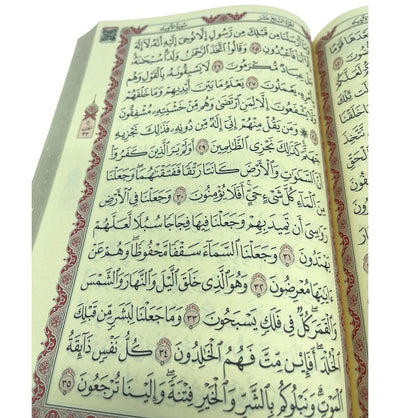 سورة الأنبياء الجزء السابع عشر
وَمَآ أَرْسَلْنَا مِن قَبْلِكَ مِن رَّسُولٍ إِلَّا نُوحِىٓ إِلَيْهِ أَنَّهُۥ لَآ إِلَٰهَ إِلَّآ
أَنَا۠ فَٱعْبُدُونِ ٢٥ وَقَالُوا۟ ٱتَّخَذَ ٱلرَّحْمَٰنُ وَلَدًا ۗ سُبْحَٰنَهُۥ ۚ
بَلْ عِبَادٌ مُّكْرَمُونَ ٢٦ لَا يَسْبِقُونَهُۥ بِٱلْقَوْلِ وَهُم
بِأَمْرِهِۦ يَعْمَلُونَ ٢٧ يَعْلَمُ مَا بَيْنَ أَيْدِيهِمْ وَمَا خَلْفَهُمْ
وَلَا يَشْفَعُونَ إِلَّا لِمَنِ ٱرْتَضَىٰ وَهُم مِّنْ خَشْيَتِهِۦ مُشْفِقُونَ
٢٨ ۞ وَمَن يَقُلْ مِنْهُمْ إِنِّىٓ إِلَٰهٌ مِّن دُونِهِۦ فَذَٰلِكَ نَجْزِيهِ
جَهَنَّمَ ۚ كَذَٰلِكَ نَجْزِى ٱلظَّٰلِمِينَ ٢٩ أَوَلَمْ يَرَ ٱلَّذِينَ كَفَرُوٓا۟
أَنَّ ٱلسَّمَٰوَٰتِ وَٱلْأَرْضَ كَانَتَا رَتْقًا فَفَتَقْنَٰهُمَا ۖ وَجَعَلْنَا
مِنَ ٱلْمَآءِ كُلَّ شَىْءٍ حَىٍّ ۖ أَفَلَا يُؤْمِنُونَ ٣٠ وَجَعَلْنَا فِى ٱلْأَرْضِ
رَوَٰسِىَ أَن تَمِيدَ بِهِمْ وَجَعَلْنَا فِيهَا فِجَاجًا سُبُلًا لَّعَلَّهُمْ
يَهْتَدُونَ ٣١ وَجَعَلْنَا ٱلسَّمَآءَ سَقْفًا مَّحْفُوظًا ۖ وَهُمْ عَنْ
ءَايَٰتِهَا مُعْرِضُونَ ٣٢ وَهُوَ ٱلَّذِى خَلَقَ ٱلَّيْلَ وَٱلنَّهَارَ وَٱلشَّمْسَ
وَٱلْقَمَرَ ۖ كُلٌّ فِى فَلَكٍ يَسْبَحُونَ ٣٣ وَمَا جَعَلْنَا لِبَشَرٍ مِّن قَبْلِكَ
ٱلْخُلْدَ ۖ أَفَإِي۟ن مِّتَّ فَهُمُ ٱلْخَٰلِدُونَ ٣٤ كُلُّ نَفْسٍ ذَآئِقَةُ
ٱلْمَوْتِ ۗ وَنَبْلُوكُم بِٱلشَّرِّ وَٱلْخَيْرِ فِتْنَةً ۖ وَإِلَيْنَا تُرْجَعُونَ ٣٥